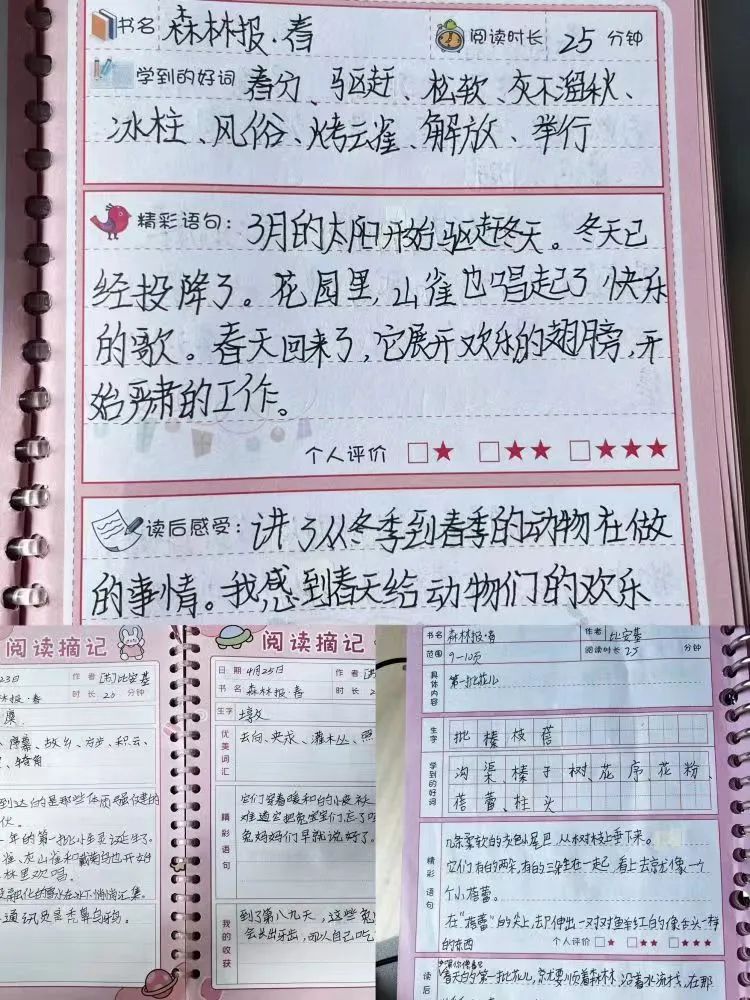 书名 森林报·春 阅读时长 25 分钟
学到的好词 春分、驱赶、松软、灰不溜秋、
冰柱、风俗、烤云雀、解放、举行
精彩语句: 3月的太阳开始驱赶冬天。冬天已
经投降了。花园里,山雀也唱起了快乐
的歌。春天回来了,它展开欢乐的翅膀,开
始严肃的工作。
个人评价 ★ ★★ ★★★
读后感受: 讲了从冬季到春季的动物在做
的事情。我感到春天给动物们的欢乐
阅读摘记
23日 作者 [苏]比安基
森林报·春 时长 25 分钟
故乡、方步、积云、
犄角
到达的是那些体质强健的
年的第一批小生灵诞生了。
林里欢唱。
通讯员是秃鼻乌鸦。
阅读摘记
日期 4月25日 作者
书名 森林报·春 时长 2
生字
优美词汇 去向、央求、灌木丛、
精彩语句 它们穿着暖和的小皮袄
难道它把兔宝宝们忘了呢
兔妈妈们早就说好了。
我的收获 到了第八九天,这些兔
会长出牙齿,可以自己吃
书名 森林报·春 作者 比安基
范围 9-10页 阅读时长 25 分钟
具体内容 第一批花儿
生字 批 榛 枝 蓓
学到的好词 沟渠、榛子树、花序、花粉、
蓓蕾、柱头
精彩语句 几条柔软的灰色小尾巴,从树枝上垂下来。
它们有的两朵,有的三朵生在一起,看上去就像一个
个小蓓蕾。
在“蓓蕾”的尖上,却伸出一对对鱼羊红的像舌头一样
的东西 个人评价 ★ ★★ ★★★
读后 春天的第一批花儿,就要顺着森林,沿着水流找,在那